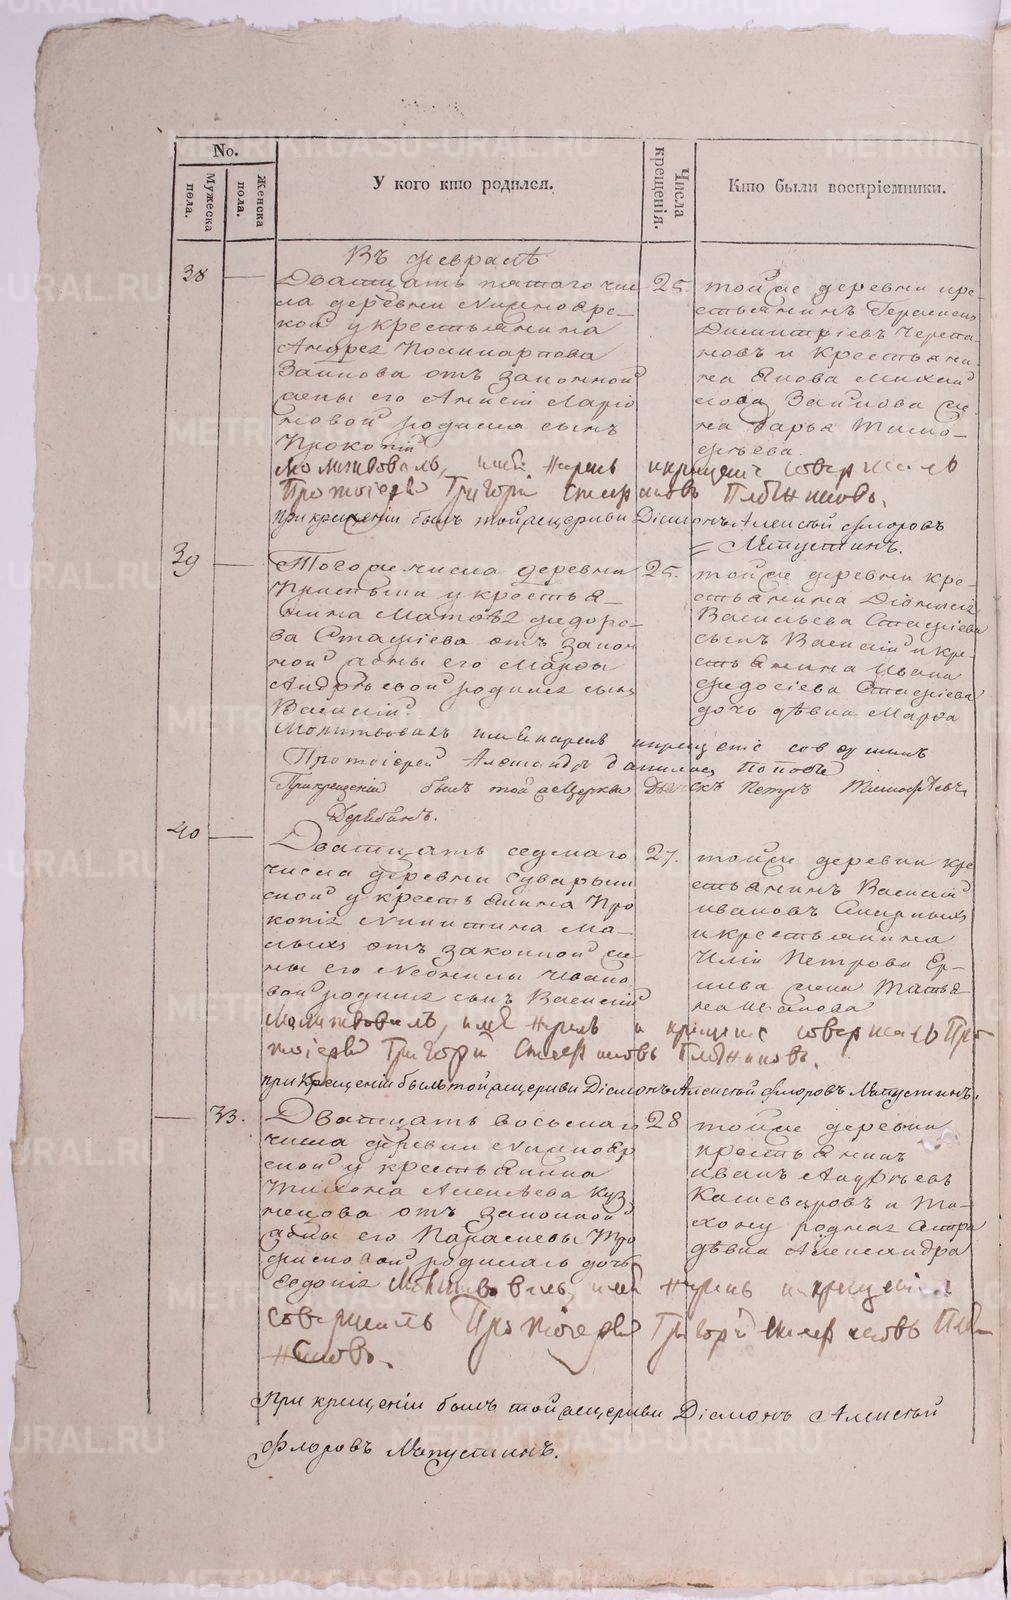 No.
Мужеска пола.
Женска пола.
У кого кто родился.
Числа крещенія.
Кто были воспріемники.
Въ февралѣ
38
Дватцать пятаго чи-
сла деревни
ской у крестьянина
Андрея Поликарпова
Заикова отъ законной
жены его Анисіи Ларіо
новой родился сынъ
Прокопій
25.
той же деревни кре-
стьянинъ Герасимъ
Димитріевъ Черепа-
новъ и крестьяни-
на Якова Михай
лова Заикова же-
на Дарья Тимо-
фѣева.
молитвовалъ, имя нарекъ и крещеніе совершалъ
Протоіерей Григорій Стефановъ
при крещеніи былъ той же церкви Діаконъ Алексѣй Флоровъ
Капустинъ.
39
Того же числа деревни
у крестья-
нина Матвѣя Федоро-
ва Стафіева отъ закон
ной жены его Марфы
Андрѣевой родился сынъ
Василій
25.
той же деревни кре-
стьянина Діонисія
Васильева Стафіева
сынъ Василій и кре-
стьянина Ивана
Федосіева Стафіева
дочь дѣвка Марфа
Молитвовалъ имя нарекъ и крещеніе совершилъ
Протоіерей Александръ Попов
При крещеніи былъ той же Церкви Дьячекъ Петръ Тимофѣевъ
Дерябинъ.
40
Дватцать седмаго
числа деревни
ской у крестьянина Про
копія Никитина Ма-
лыхъ отъ законной же
ны его Ивано
вой родился сынъ Василій
27.
той же деревни кре
стьянинъ Василій
Ивановъ
и крестьянина
Иліи Петрова Ер-
шева жена Татья
на Иванова
Молитвовалъ, имя нарекъ и крещеніе совершалъ Про
тоіерей Григорій Стефановъ
при крещеніи былъ той же церкви Діаконъ Алексѣй Флоровъ Капустинъ.
33.
Дватцать восьмаго
числа деревни
ской у крестьянина
Тихона Алексѣева Куз
нецова отъ законной
жены его Параскевы Тро
фимовой родилась дочь
Евдокія
28
той же деревни
крестьянинъ
Иванъ Андрѣевъ
Кашеваровъ и Ти-
хону родная сестра
дѣвка Александра
Молитвовалъ, имя нарекъ и крещеніе
совершалъ Протоіерей Григорій Стефановъ
При крещеніи былъ той же церкви Діаконъ Алексѣй
Флоровъ Капустинъ.
METRIKI.GASO-URAL.RU